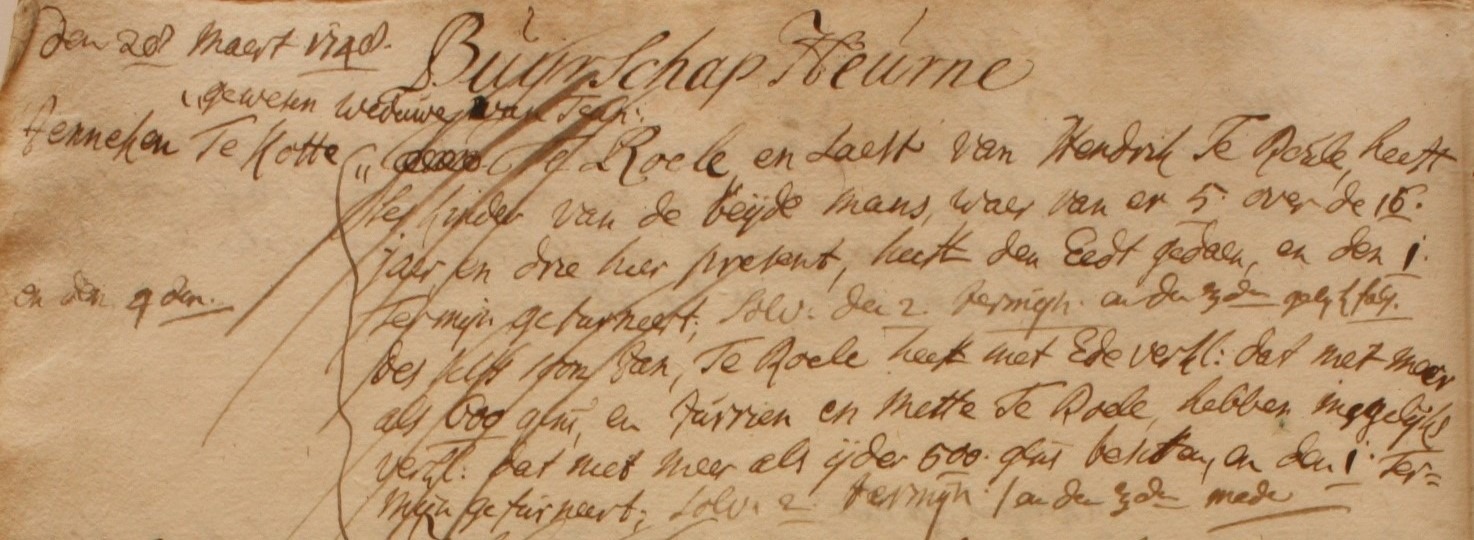 den 28 Maert 1748.
Buurschap Heurne
gewesen weduwe van Jan:
Henneken Te Kotte Te Roele, en laest van Hendrik Te Roele, heeft
kinder van de beijde mans, waer van er 5. over de 16.
jaer en drie hier present, heeft den Eedt gedaen, en den 1.
en den 4den.
Termijn gefurneert; Solv. den 2. termijn. en den 3den gelykfals.
des selfs soon Jan, Te Roele heeft met Ede verkl: dat niet meer
als 600 guls, en Jurrien en Mette Te Roele, hebben insgelijks
verkl: dat niet meer als ijder 500. guls besitten, en den 1. Ter=
mijn gefurneert; Solv. 2 termijn / en den 3den mede